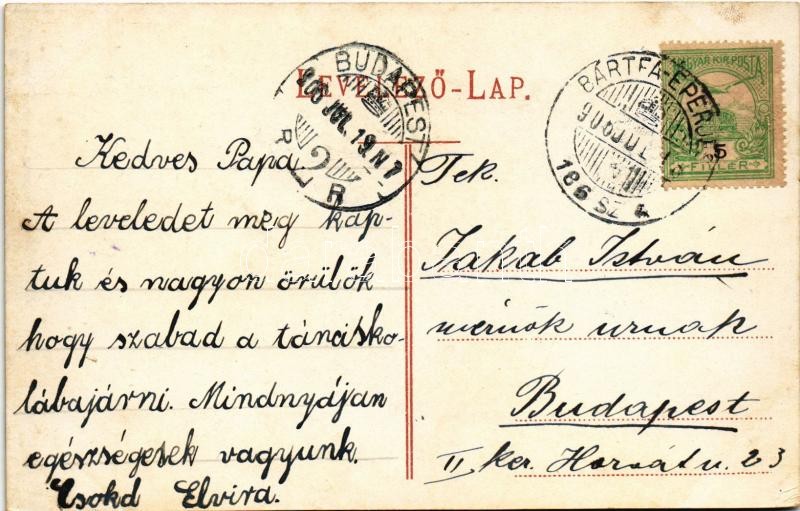 LEVELEZŐ-LAP.
BUDAPEST
906 JUL. 19. N 7
R 2 R
BÁRTFA-EPERJES
906 JUL
186 SZ
MAGYAR KIR. POSTA
5
FILLÉR
Kedves Papa
A leveledet meg kap-
tuk és nagyon örülök
hogy szabad a táncisko-
lábajárni. Mindnyájan
egészségesek vagyunk.
Csokd Elvira.
Tek.
Jakab István
mérnök urnak
Budapest
II ker. Horvát u. 23